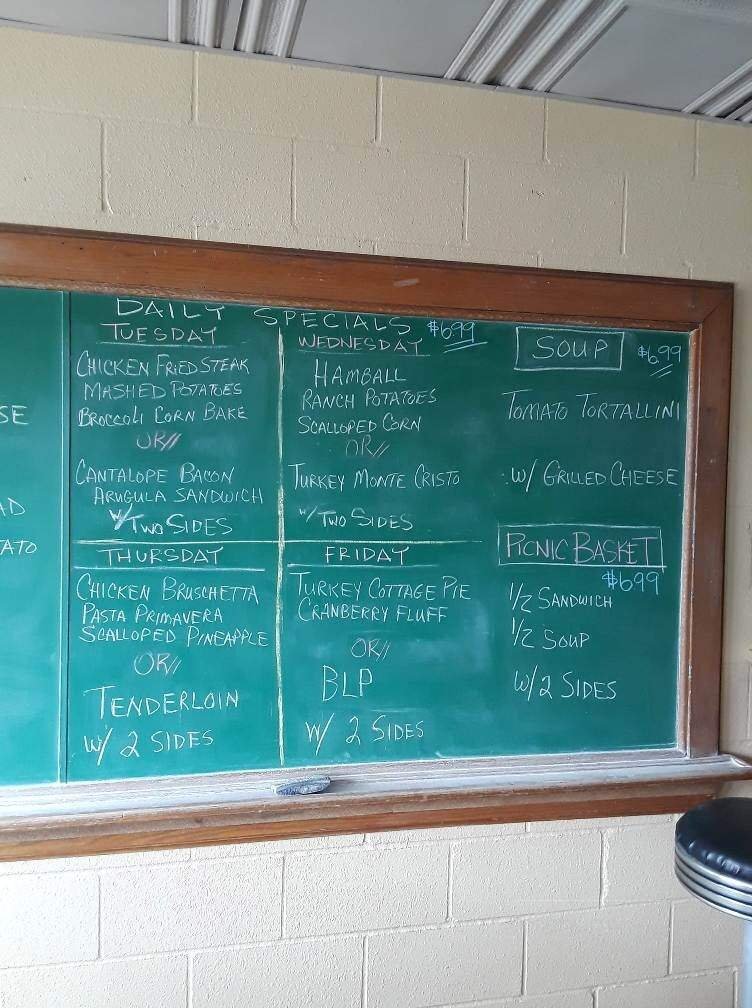 SE
AD
ATO
DAILY SPECIALS $6.99
TUESDAY
CHICKEN FRIED STEAK
MASHED POTATOES
BROCCOLI CORN BAKE
OR//
CANTALOPE BACON
ARUGULA SANDWICH
W/ TWO SIDES
WEDNESDAY
HAMBALL
RANCH POTATOES
SCALLOPED CORN
OR//
TURKEY MONTE CRISTO
W/ TWO SIDES
THURSDAY
CHICKEN BRUSCHETTA
PASTA PRIMAVERA
SCALLOPED PINEAPPLE
OR//
TENDERLOIN
W/ 2 SIDES
FRIDAY
TURKEY COTTAGE PIE
CRANBERRY FLUFF
OR//
BLP
W/ 2 SIDES
SOUP $6.99
TOMATO TORTALLINI
W/ GRILLED CHEESE
PICNIC BASKET
$6.99
1/2 SANDWICH
1/2 SOUP
W/ 2 SIDES